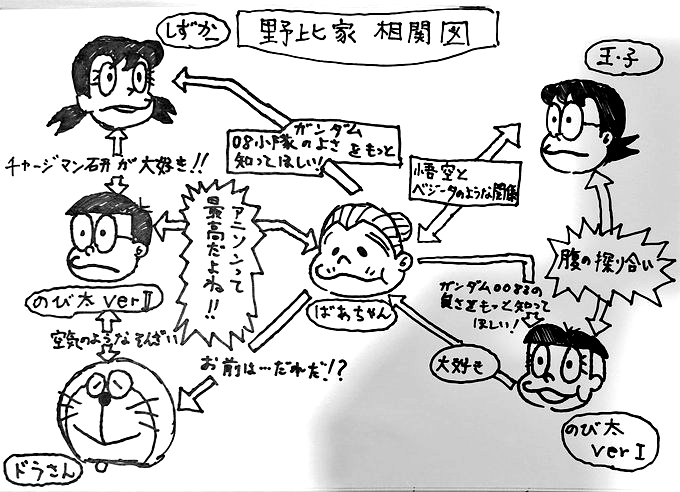 しずか
野比家 相関図
王・子
ガンダム
08小隊のよさをもっと
知ってほしい!
チャージマン研が大好き!!
悟空と
ベジータのような関係
アニソンって
最高だよね!!
腹の探り合い
のび太 ver II
ばあちゃん
ガンダム0083の
良さをもっと知って
ほしい!
空気のようなそんざい
お前は…だれだ!?
大好き
のび太
ver I
ドラさん